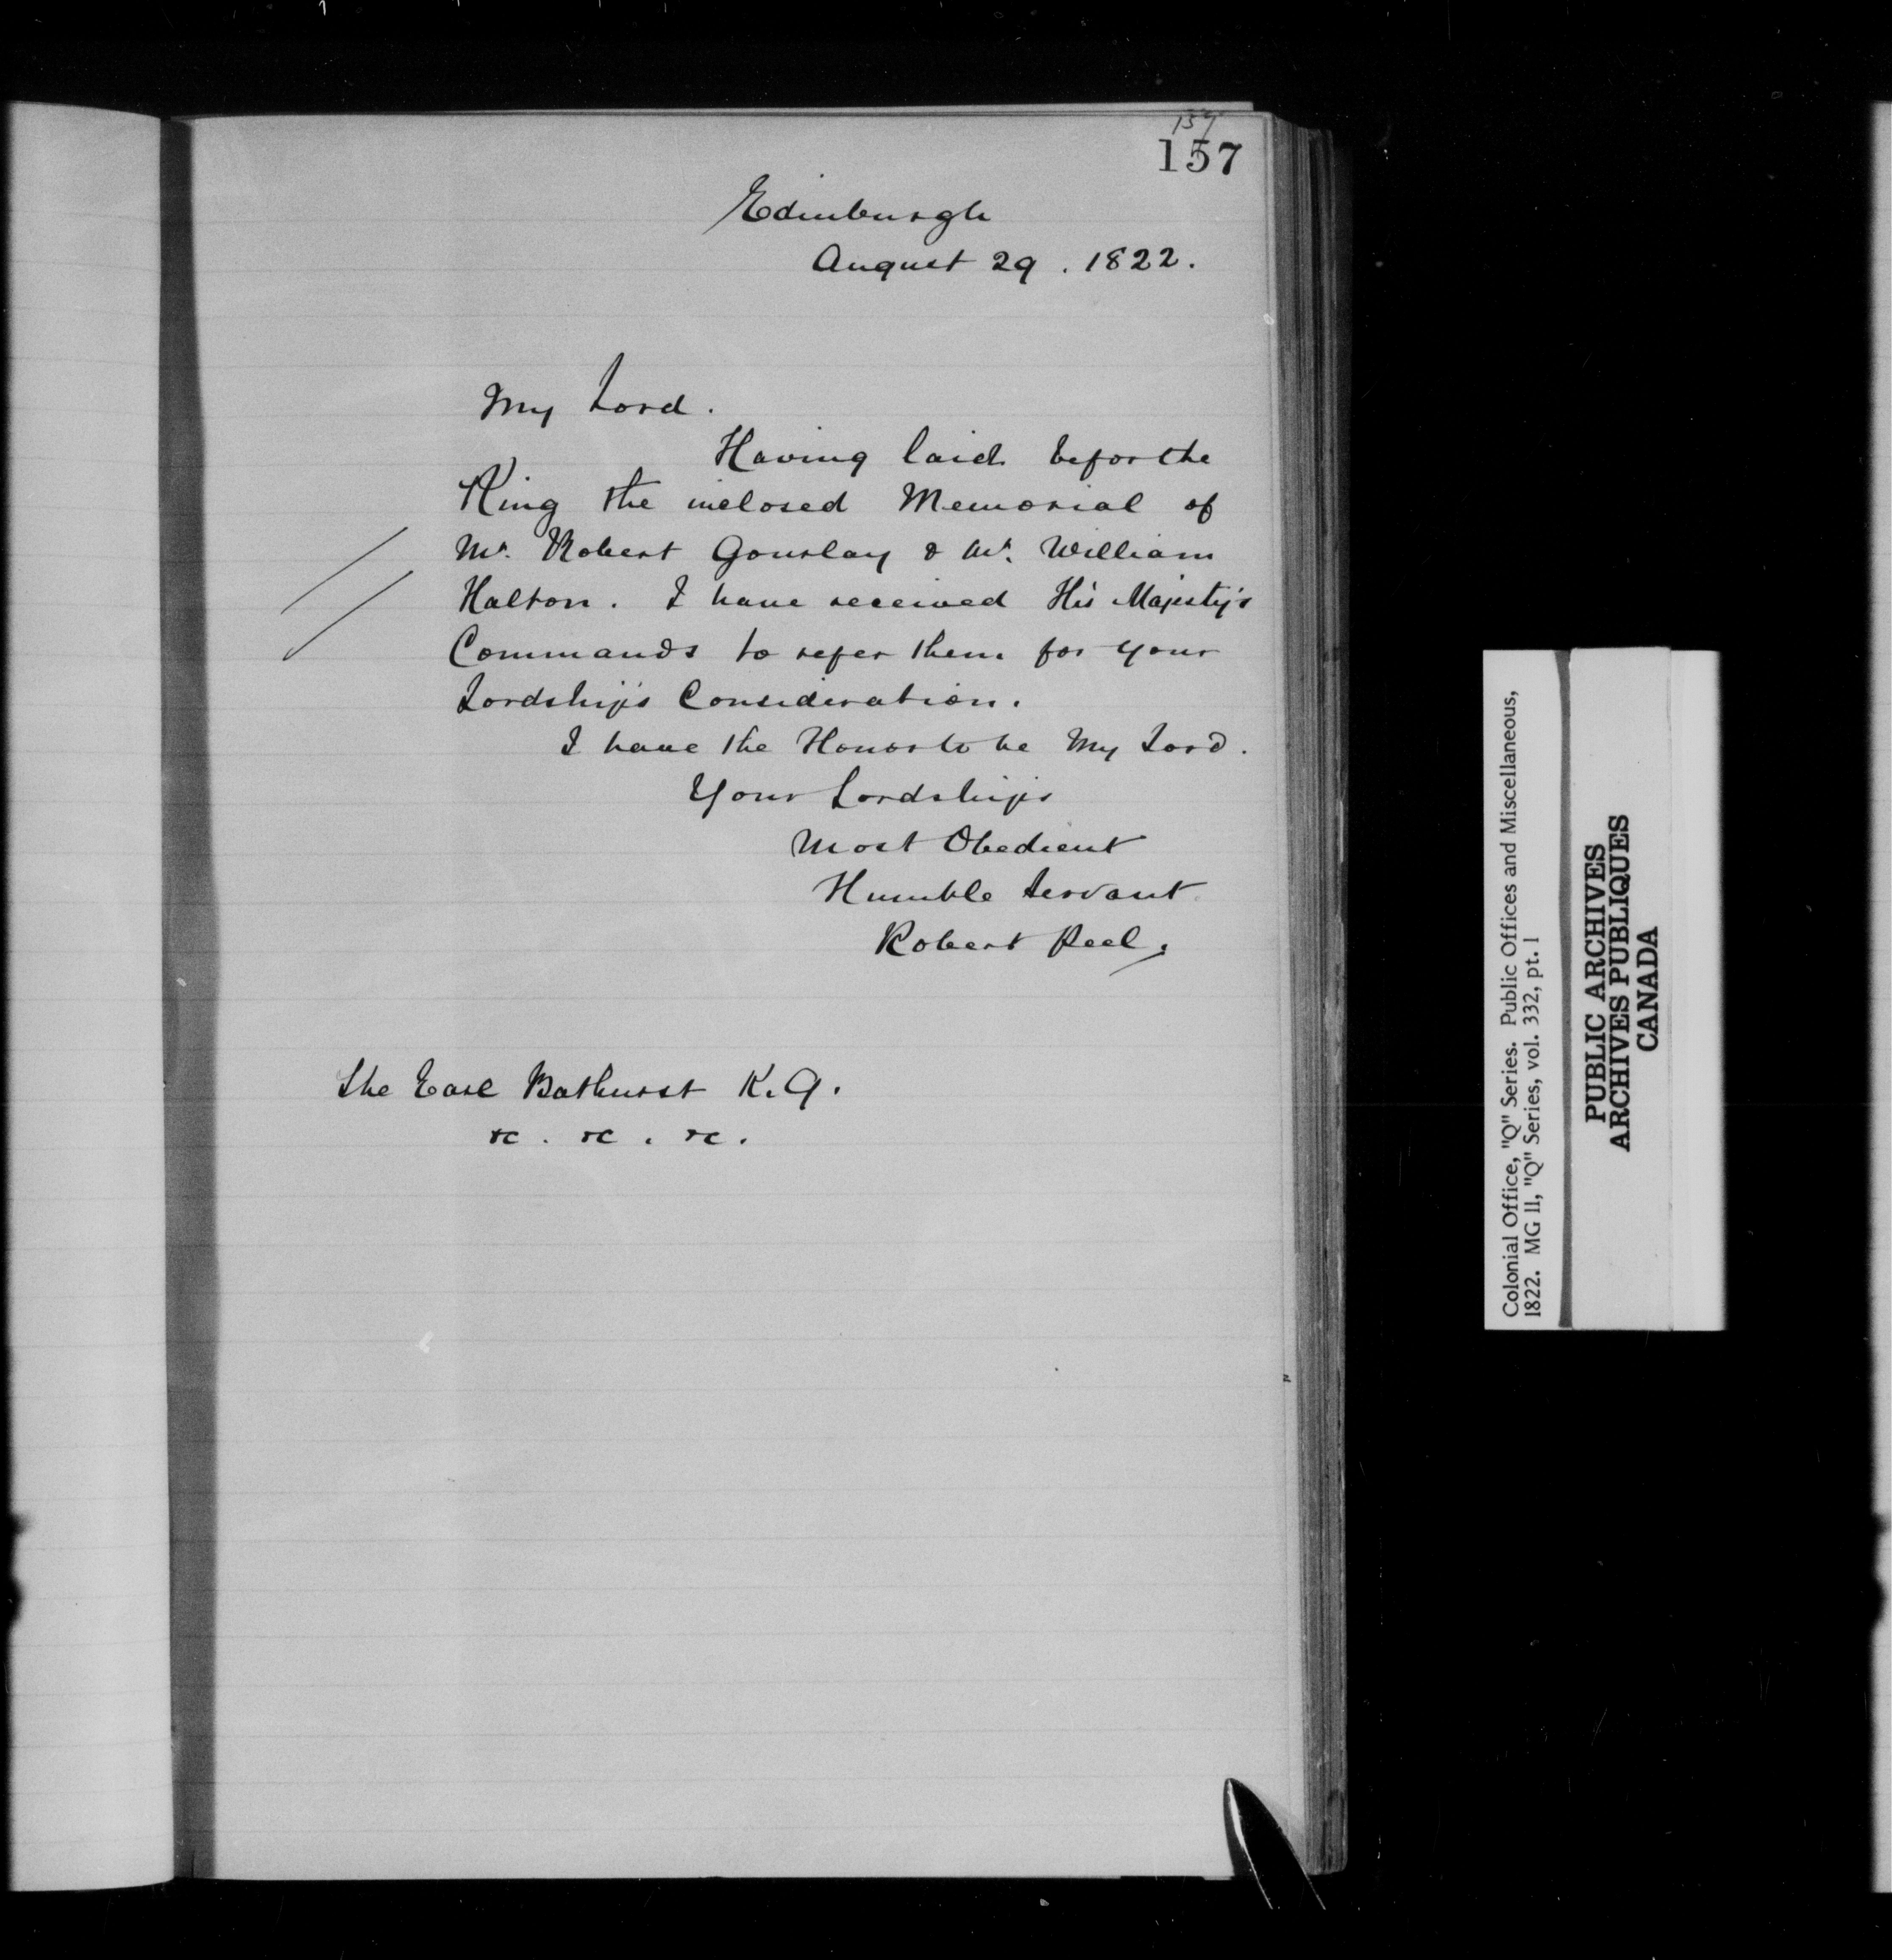 157
157
Edinburgh
August 29. 1822.
My Lord.
Having laid befor the
King the inclosed Memorial of
Mr. Robert Gourlay & Mr. William
Halton. I have received His Majesty's
Commands to refer them for your
Lordship's Consideration.
I have the Honor to be My Lord.
Your Lordships
Most Obedient
Humble Servant.
Robert Peel.
The Earl Bathurst K.G.
&c. &c. &c.
Colonial Office, "Q" Series. Public Offices and Miscellaneous,
1822. MG 11, "Q" Series, vol. 332, pt. 1
PUBLIC ARCHIVES
ARCHIVES PUBLIQUES
CANADA